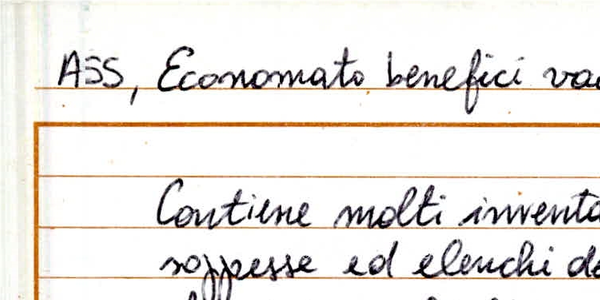 ASS, Economato benefici va
Contiene molti invent
soppesse ed elenchi de